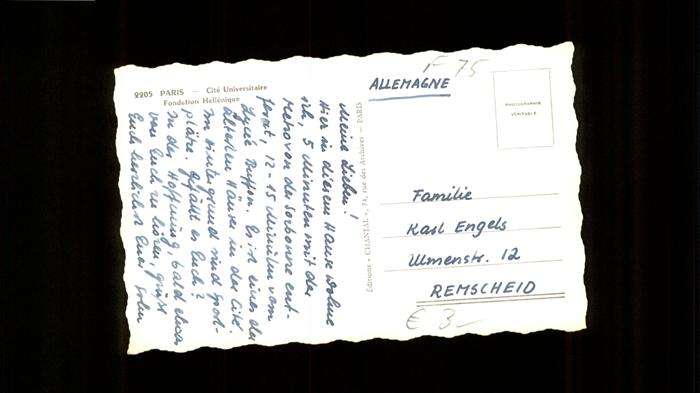 2205 PARIS — Cité Universitaire
Fondation Hellénique
Meine Lieben!
Hier in diesem Hause wohne
ich, 5 Minuten mit der
Metro von der Sorbonne ent-
fernt, 12-15 Minuten vom
Lycée Buffon. Es ist eines der
ältesten Häuser in der Cité.
Im Hintergrund sind Sport-
plätze. Gefällt es Euch?
In der Hoffnung, bald etwas
von Euch zu hören, grüsst
Euch herzlichst Euer
Editions « CHANTAL », 74, rue des Archives — PARIS
F 75
ALLEMAGNE
PHOTOGRAPHIE
VÉRITABLE
Familie
Karl Engels
Ulmenstr. 12
REMSCHEID
€ 3-